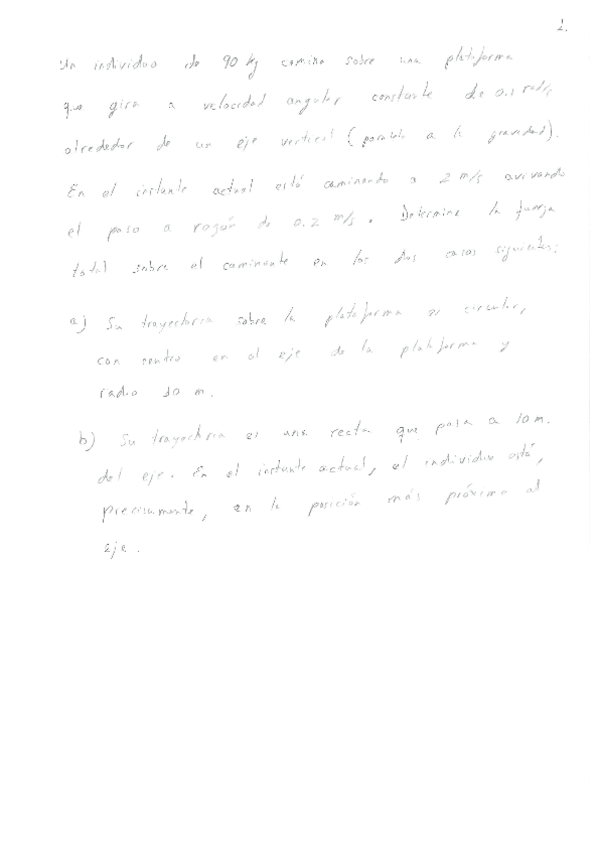 1.
Un individuo de 90 kg camina sobre una plataforma
que gira a velocidad angular constante de 0.1 rad/s
alrededor de un eje vertical (paralelo a la gravedad).
En el instante actual está caminando a 2 m/s avivando
el paso a razón de 0.2 m/s. Determine la fuerza
total sobre el caminante en los dos casos siguientes:
a) Su trayectoria sobre la plataforma es circular,
con centro en el eje de la plataforma y
radio 10 m.
b) Su trayectoria es una recta que pasa a 10 m.
del eje. En el instante actual, el individuo está,
precisamente, en la posición más próxima al
eje.